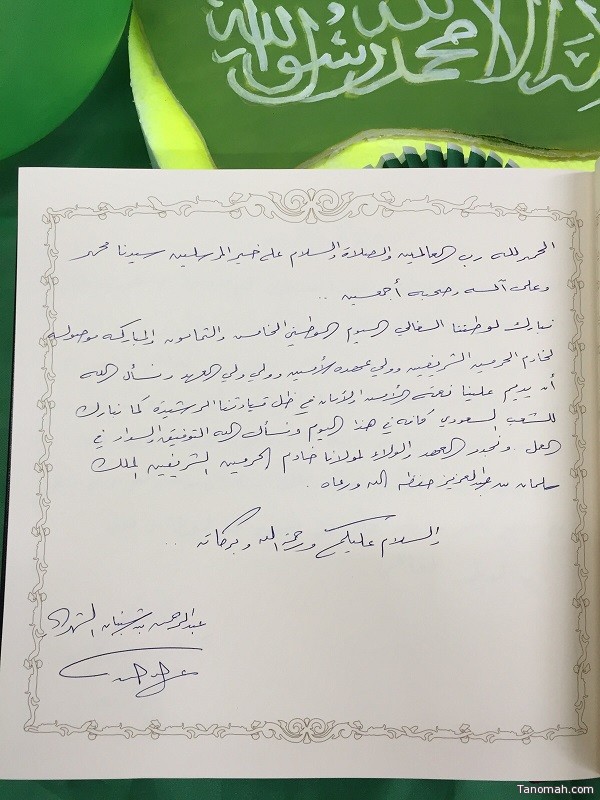 إله إلا الله
محمد رسول الله
الحمد لله رب العالمين والصلاة والسلام على خير المرسلين سيدنا محمد
وعلى آله وصحبه أجمعين ..
نبارك لوطننا الغالي اليوم الوطني الخامس والثمانون والمباركه موصوله
لخادم الحرمين الشريفين وولي عهده الأمين وولي ولي العهد ونسأل الله
أن يديم علينا نعمة الأمن والأمان في ظل قيادتنا الرشيدة كما نبارك
للشعب السعودي كافة في هذا اليوم ونسأل الله التوفيق والسداد في
العمل ونجدد العهد والولاء لمولانا خادم الحرمين الشريفين الملك
سلمان بن عبدالعزيز حفظه الله ورعاه .
والسلام عليكم ورحمة الله وبركاته ..
عبدالرحمن بن
Tanomah.com